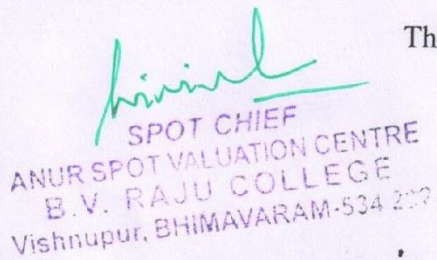 Th
SPOT CHIEF
ANUR SPOT VALUATION CENTRE
B.V. RAJU COLLEGE
Vishnupur, BHIMAVARAM-534 202